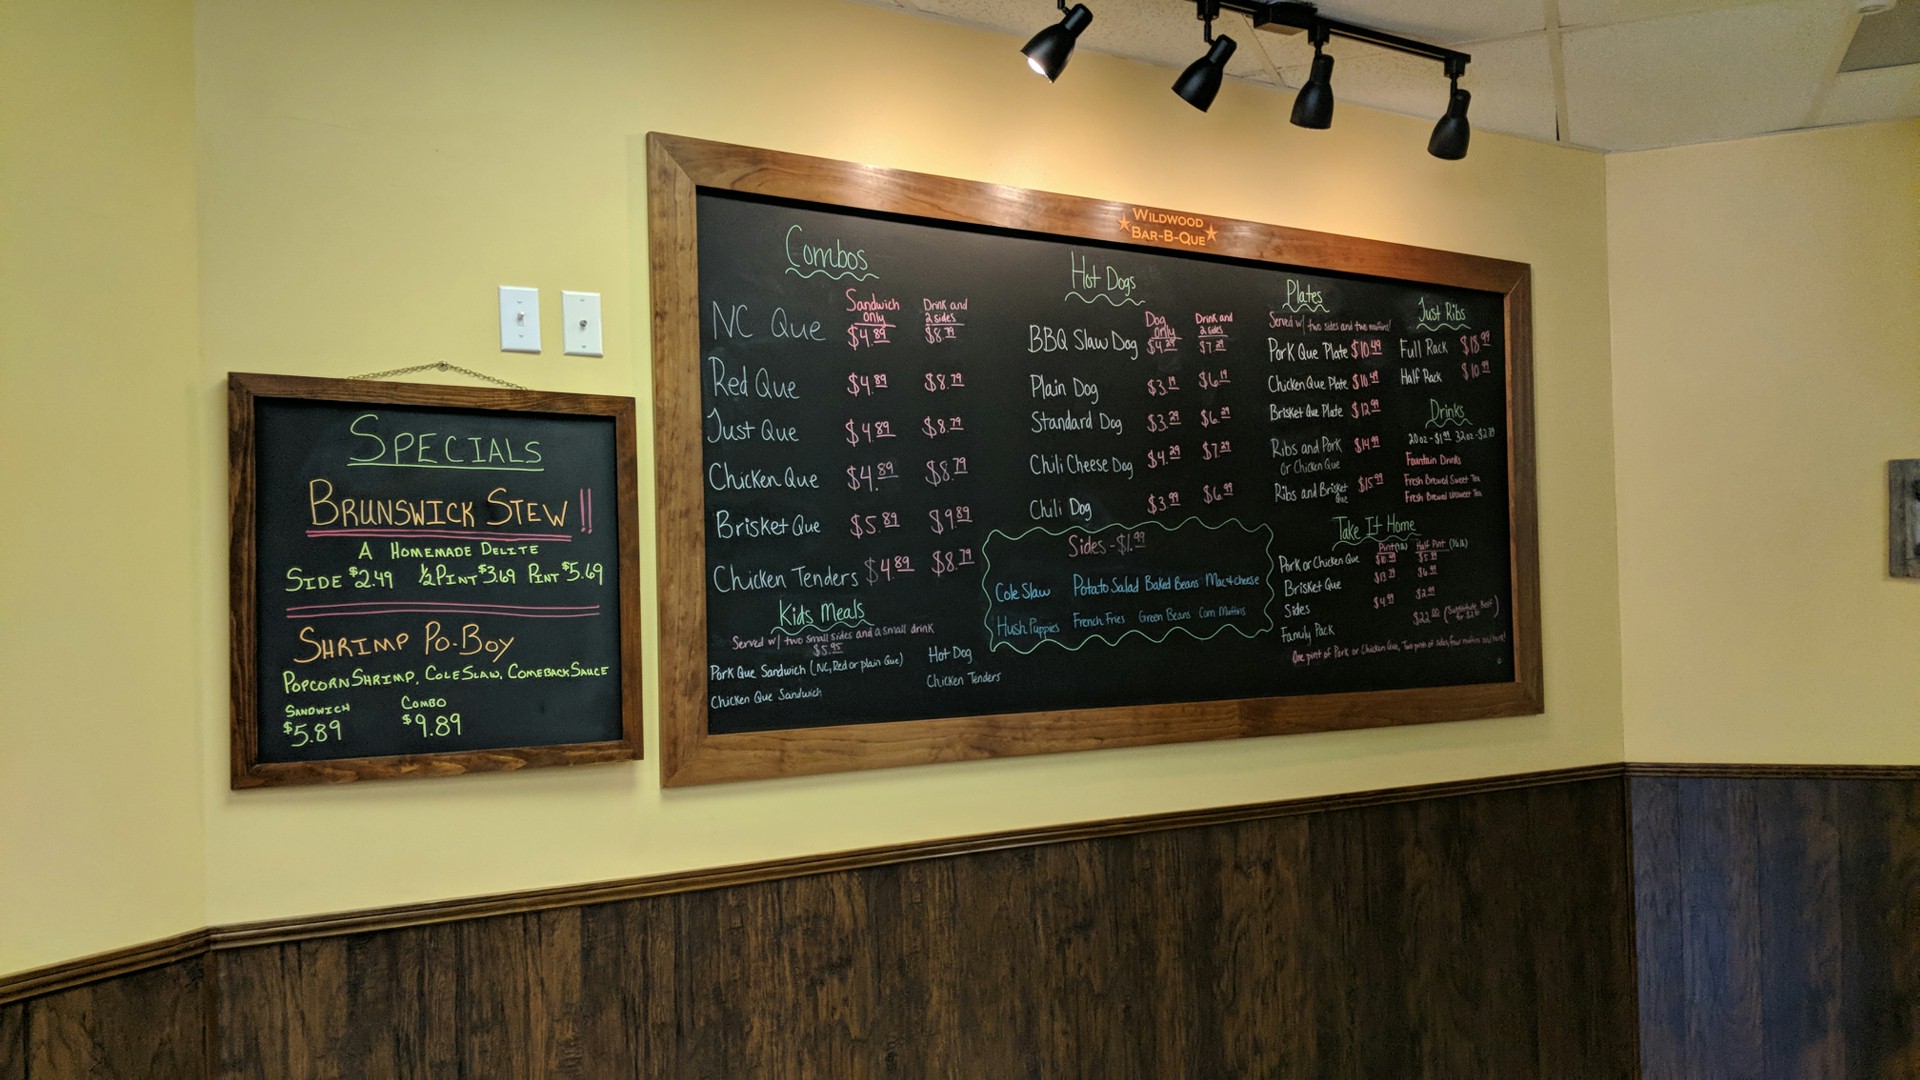 SPECIALS
BRUNSWICK STEW!!
A HOMEMADE DELITE
SIDE $2.49 ½ PINT $3.69 PINT $5.69
SHRIMP PO-BOY
POPCORN SHRIMP, COLE SLAW, COMEBACK SAUCE
SANDWICH COMBO
$5.89 $9.89
WILDWOOD
BAR-B-QUE
Combos
Sandwich only Drink and 2 sides
NC Que $4.89 $8.79
Red Que $4.89 $8.79
Just Que $4.89 $8.79
Chicken Que $4.89 $8.79
Brisket Que $5.89 $9.89
Chicken Tenders $4.89 $8.79
Kids Meals
Served w/ two small sides and a small drink
$5.95
Pork Que Sandwich (NC, Red or plain Que) Hot Dog
Chicken Que Sandwich Chicken Tenders
Hot Dogs
Dog only Drink and 2 sides
BBQ Slaw Dog $4.29 $7.29
Plain Dog $3.19 $6.19
Standard Dog $3.29 $6.29
Chili Cheese Dog $4.29 $7.29
Chili Dog $3.99 $6.99
Sides - $1.99
Cole Slaw Potato Salad Baked Beans Mac+cheese
Hush Puppies French Fries Green Beans Corn Muffins
Plates
Served w/ two sides and two muffins!
Pork Que Plate $10.49
Chicken Que Plate $10.49
Brisket Que Plate $12.99
Ribs and Pork $14.99
or Chicken Que
Ribs and Brisket $15.99
Que
Just Ribs
Full Rack $18.99
Half Rack $10.99
Drinks
20oz - 32oz -
Fountain Drinks
Fresh Brewed Sweet Tea
Fresh Brewed Unsweet Tea
Take It Home
Pint (1lb) Half Pint (½lb)
Pork or Chicken Que
Brisket Que
Sides $4.99 $2.99
Family Pack $22.00 (Substitute Beef
One pint of Pork or Chicken Que, Two pints of sides, four muffins